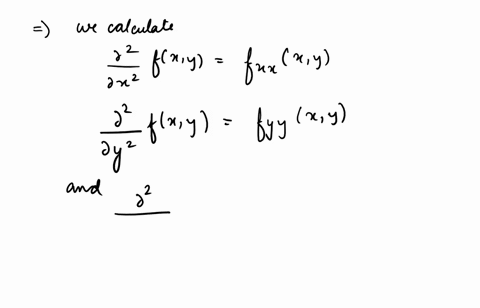 ⇒ we calculate
∂²/∂x² f(x,y) = fxx(x,y)
∂²/∂y² f(x,y) = fyy(x,y)
and ∂²/